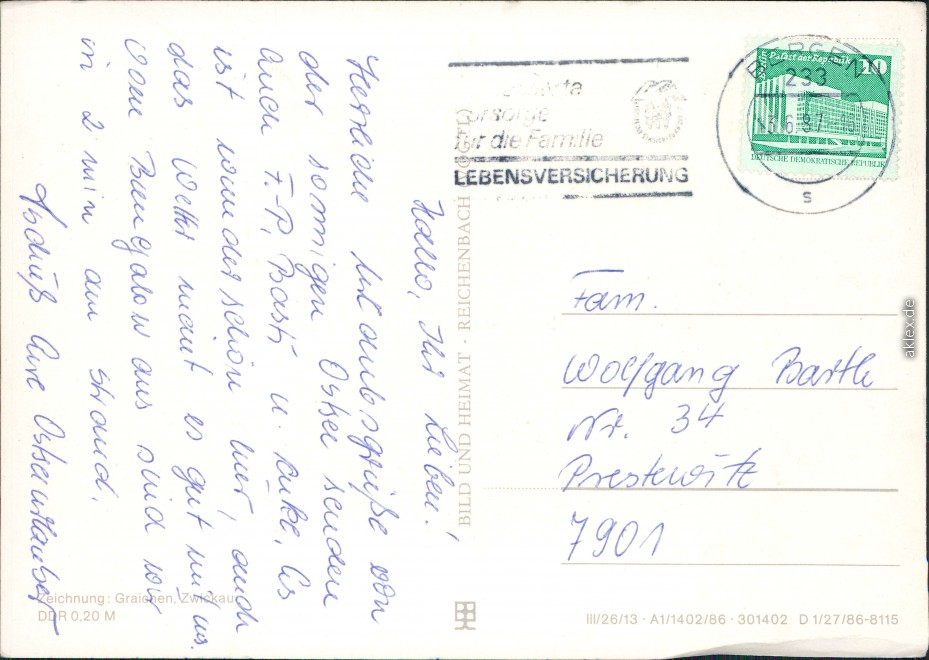 Hallo, Ihr Lieben!
Herzliche Urlaubsgrüße von
der sonnigen Ostsee senden
Euch F.-P., Basti u. Anke. Es
ist wunderschön hier, auch
das Wetter meint es gut mit uns.
Vom Bungalow aus sind wir
in 2 min am Strand.
Tschüß Eure Ostseeurlauber
Zeichnung: Graichen, Zwickau
DDR 0,20 M
BILD UND HEIMAT · REICHENBACH
Vorsorge
für die Familie
LEBENSVERSICHERUNG
BERGEN
233
13.6.87
s
Palast der Republik
10
DEUTSCHE DEMOKRATISCHE REPUBLIK
Fam.
Wolfgang Barth
Nr. 34
Prestewitz
7901
III/26/13 · A1/1402/86 · 301402 D 1/27/86-8115
aklex.de